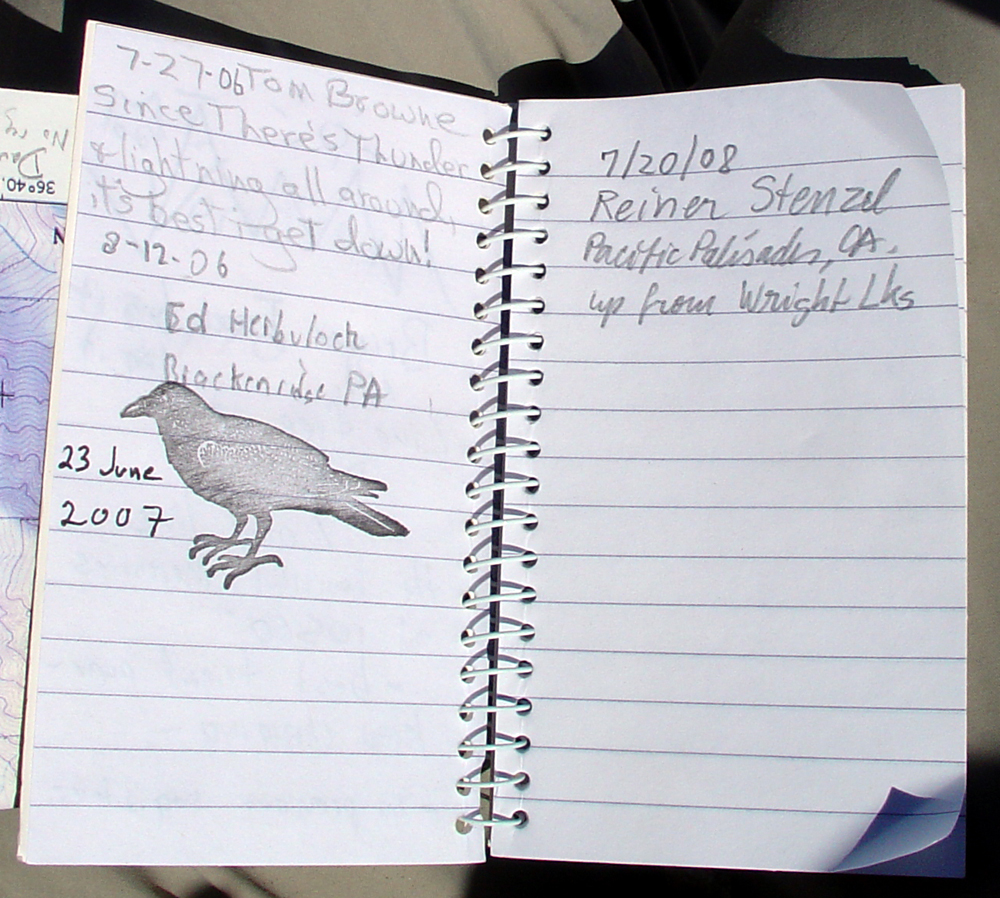 7-27-06 Tom Browne
Since There's Thunder
& lightning all around,
it's best i get down!
8-12-06
Ed
PA
23 June
2007
7/20/08
Reiner Stenzel
Pacific Palisades, CA.
up from Wright Lks
No.
36°40.
N